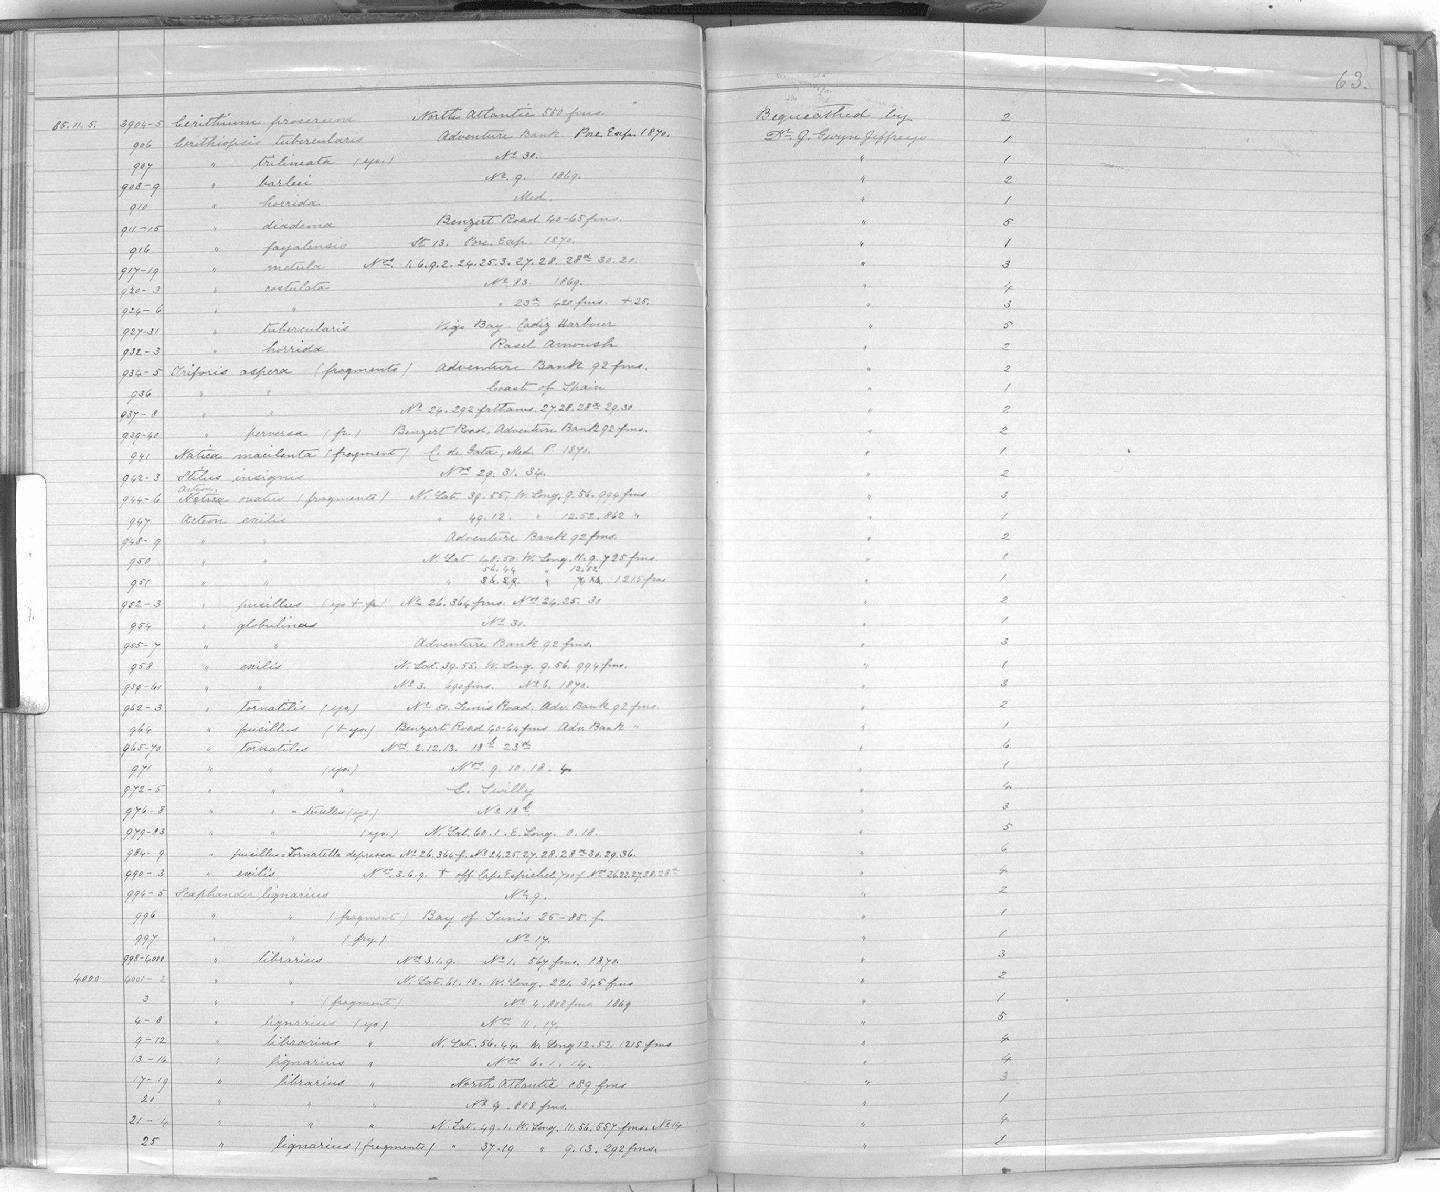 63.
85.11.5. 3904-5 Cerithium procerum North Atlantic 550 fms. Bequeathed by 2
906 Cerithiopsis tubercularis Adventure Bank Porc. Exp. 1870. Dr. J. Gwyn Jeffreys 1
907 " trilineata (yo.) No 30. " 1
908-9 " barleei No. 9. 1869. " 2
910 " horrida Med. " 1
911-15 " diadema Benzert Road 40-65 fms. " 5
916 " fayalensis St 13. Porc. Exp. 1870. " 1
917-19 " metula Nos. 1.6.9.2.24.25.3.27.28.28a 30.20. " 3
920-3 " costulata No. 83. 1869. " 4
924-6 " " " 23a 420 fms. + 25. " 3
927-31 " tubercularis Vigo Bay. Cadiz Harbour " 5
932-3 " horrida Rasel Amoush " 2
934-5 Triforis aspera (fragments) Adventure Bank 92 fms. " 2
936 " " Coast of Spain " 1
937-8 " " No 24. 292 fathoms. 27.28.28a 29.30 " 2
939-40 " perversa (fr.) Benzert Road, Adventure Bank 92 fms. " 2
941 Natica macilenta (fragment) C. de Gata, Med. P. 1870. " 1
942-3 Stilus insignis Nos 29. 31. 34. " 2
Action
944-6 Natica ovatus (fragments) N. Lat. 39.55, W. Long. 9.56. 994 fms " 3
947 Action exilis " 49.12. " 12.52. 862 " " 1
948-9 " " Adventure Bank 92 fms. " 2
950 " " N. Lat 48.50. W. Long. 11.9. 725 fms " 1
56.44 12.52
951 " " " " 1215 fms " 1
952-3 " pusillus (yo + fr) No. 26. 364 fms. Nos 24. 25. 30 " 2
954 " globulinus No 30. " 1
955-7 " " Adventure Bank 92 fms. " 3
958 " exilis N. Lat. 39.55. W. Long. 9.56. 994 fms. " 1
959-61 " " No 3. 690 fms. No 6. 1870. " 3
962-3 " tornatilis (yo) No. 50. Tunis Road. Adv. Bank 92 fms. " 2
964 " pusillus (+ yo.) Benzert Road 40-64 fms Adv. Bank " " 1
965-70 " tornatilis Nos 2.12.13. 18b 23a " 6
971 " " (yo.) Nos. 9. 10. 18. 4 " 1
972-5 " " " L. Swilly " 4
976-8 " " " (yo.) No 18b. " 3
979-83 " " (yo.) N. Lat. 60.1. E. Long. 0.18. " 5
984-9 " pusillus = Tornatella depressa No 26. 364 f. Nos 24.25.27.28.28a 30.29.36. " 6
990-3 " exilis Nos. 3.6.9. + off Cape Espichel 700 f. Nos 26.22.27.28.28a " 4
994-5 Scaphander lignarius No 9. " 2
996 " " (fragment) Bay of Tunis 25-85. f. " 1
997 " " (fry) No 17. " 1
998-4000 " librarius Nos 3.1.9. No 1. 567 fms. 1870. " 3
4000 4001-2 " " N. Lat. 61.10. W. Long. 221. 345 fms " 2
3 " " (fragment) No 4. 808 fms 1869 " 1
4-8 " lignarius (yo) Nos 11. 17. " 5
9-12 " librarius " N. Lat. 56.44. W. Long 12.52. 1215 fms " 4
13-16 " lignarius " Nos 6. 1. 14. " 4
17-19 " librarius " North Atlantic 189 fms " 3
20 " " " No 4. 808 fms. " 1
21-4 " " " N. Lat. 49.1. W. Long. 11.56. 557 fms. No 14. " 4
25 " lignarius (fragments) " 37.19 " 9.13. 292 fms. " 1